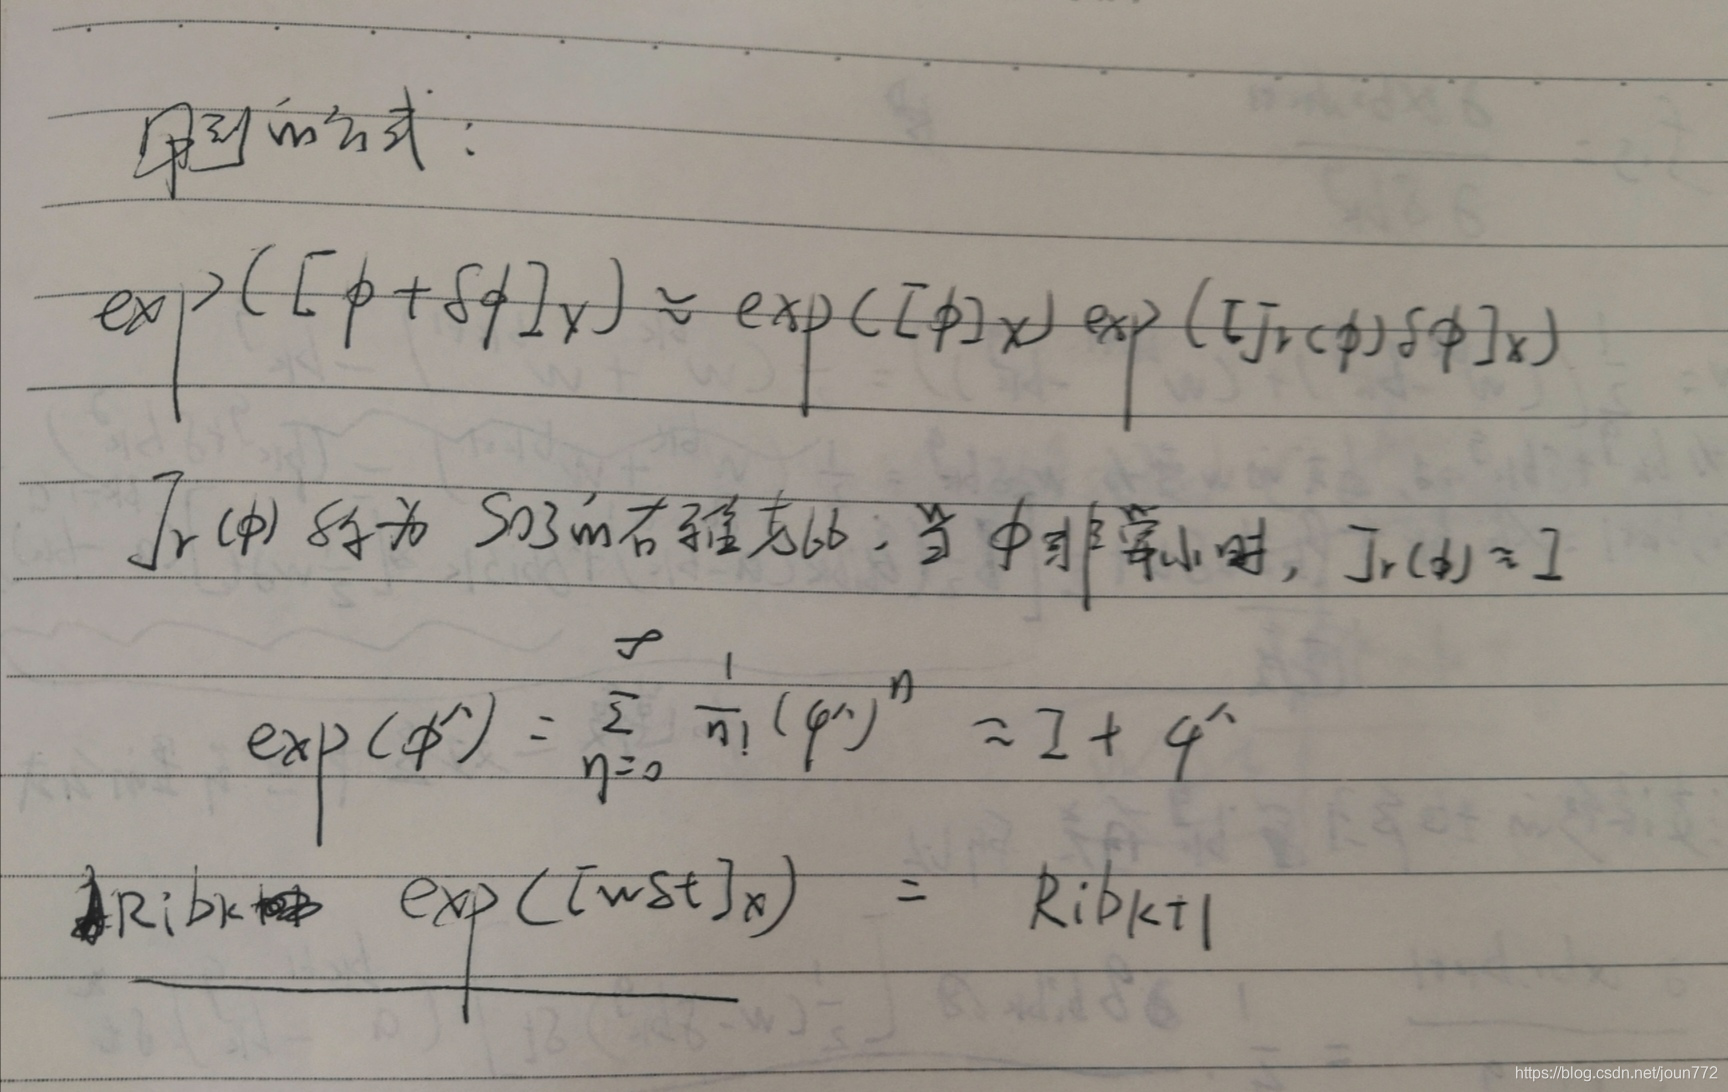 用到的公式:
exp([φ+δφ]x) ≈ exp([φ]x) exp([Jr(φ)δφ]x)
Jr(φ) 称为 SO3的右雅克比. 当 φ非常小时, Jr(φ)≈I
exp(φ^) = ∑ n=0 ∞ 1/n! (φ^)^n ≈ I + φ^
Ribk exp([wδt]x) = Ribk+1
https://blog.csdn.net/joun772